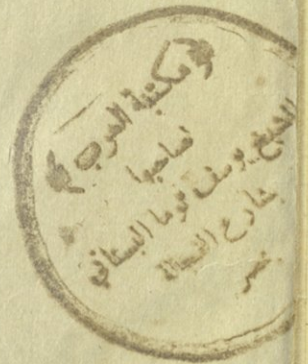 مكتبة العرب
لصاحبها
الشيخ يوسف توما البستاني
شارع الفجالة
بمصر